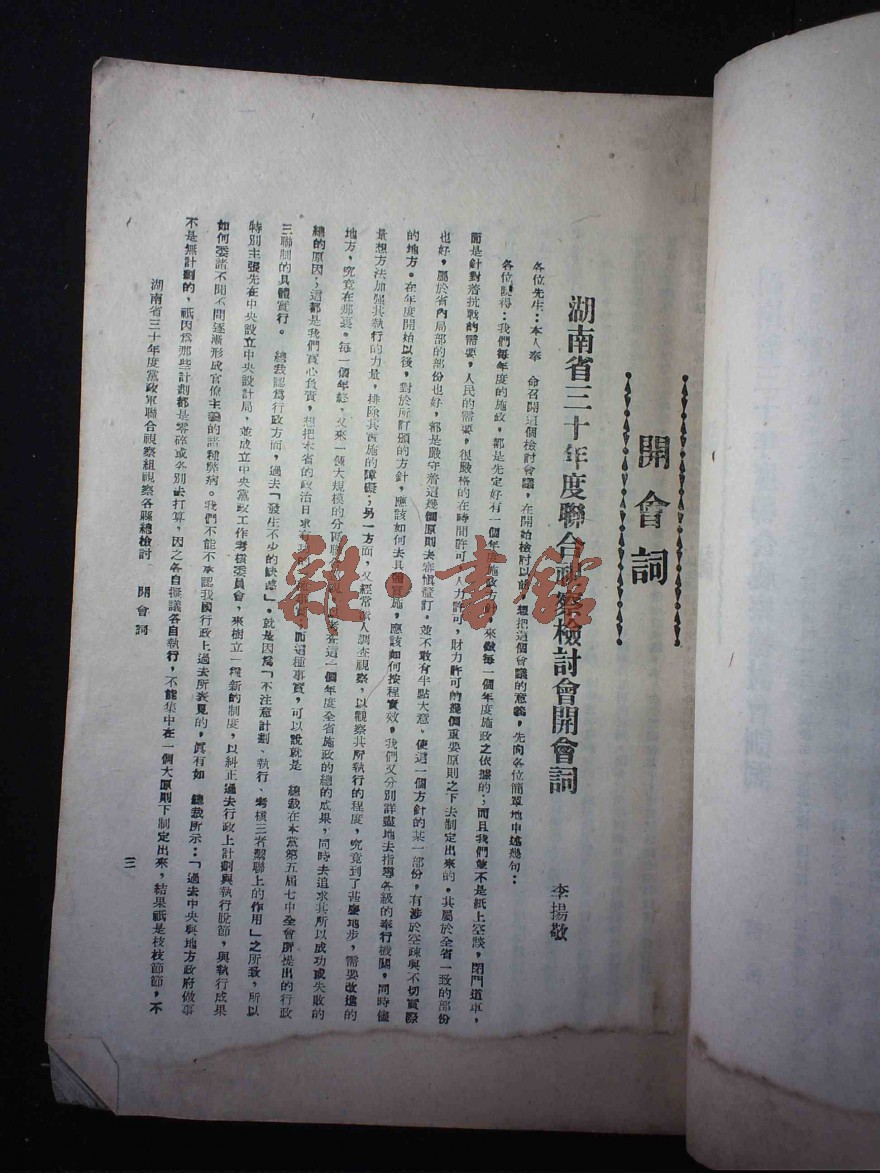 開會詞
湖南省三十年度聯合視察檢討會開會詞
李揚敬
各位先生：本人奉　命召開這個檢討會議，在開始檢討以前，想把這個會議的意義，先向各位簡單地申述幾句：
各位曉得：我們每年度的施政，都是先定好有一個年度施政方針，來做每一個年度施政之依據的；而且我們並不是紙上空談，閉門造車，
而是針對着抗戰的需要，人民的需要，很嚴格的在時間許可，人力許可，財力許可的幾個重要原則之下去制定出來的。其屬於全省一致的部份
也好，屬於省內局部的部份也好，都是嚴守着這幾個原則去審愼釐訂。並不敢有半點大意、使這一個方針的某一部份，有涉於空疎與不切實際
的地方。在年度開始以後，對於所訂頒的方針，應該如何去具體實施，應該如何按程實效，我們又分別詳盡地去指導各級的奉行機關，同時儘
量想方法加强其執行的力量，排除其實施的障礙；另一方面，又經常派人調查視察，以觀察其所執行的程度，究竟到了甚麼地步，需要改進的
地方，究竟在那裏。每一個年終，又來一個大規模的分區聯合視察，考察在這一個年度全省施政的總的成果，同時去追求其所以成功或失敗的
總的原因；這都是我們實心負責，想把本省的政治日求有　　　　而這種事實，可以說就是　總裁在本黨第五屆七中全會所提出的行政
三聯制的具體實行。　總裁認爲行政方面，過去「發生不少的缺憾」。就是因爲「不注意計劃、執行、考核三者聯繫上的作用」之所致，所以
特別主張先在中央設立中央設計局，並成立中央黨政工作考核委員會，來樹立一種新的制度，以糾正過去行政上計劃與執行脫節，與執行成果
如何委諸不聞不問逐漸形成官僚主義的諸種弊病。我們不能不承認我國行政上過去所表見的，眞有如　總裁所示：「過去中央與地方政府做事
不是無計劃的，祇因爲那些計劃都是零碎或各別去打算，因之各自擬議各自執行，不能集中在一個大原則下制定出來，結果祇是枝枝節節，不
湖南省三十年度黨政軍聯合視察組視察各縣總檢討　開會詞
三
雜·書館